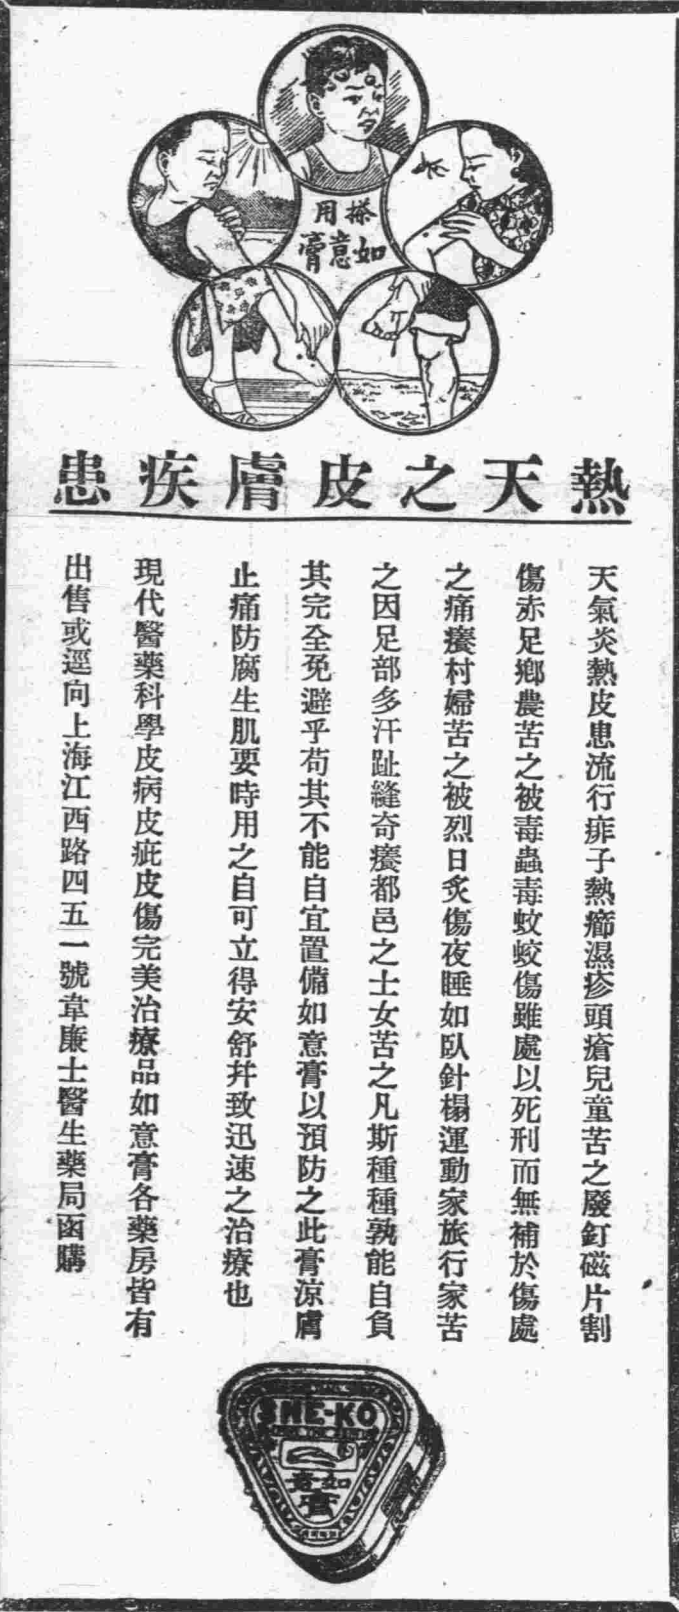 搽用
如意膏
熱天之皮膚疾患
天氣炎熱皮患流行痱子熱癤濕疹頭瘡兒童苦之廢釘磁片割
傷赤足鄉農苦之被毒蟲毒蚊蛟傷雖處以死刑而無補於傷處
之痛癢村婦苦之被烈日炙傷夜睡如臥針榻運動家旅行家苦
之因足部多汗趾縫奇癢都邑之士女苦之凡斯種種孰能自負
其完全免避乎苟其不能自宜置備如意膏以預防之此膏涼膚
止痛防腐生肌要時用之自可立得安舒幷致迅速之治療也
現代醫藥科學皮病皮疵皮傷完美治療品如意膏各藥房皆有
出售或逕向上海江西路四五一號韋廉士醫生藥局函購
SHE-KO
如意
膏